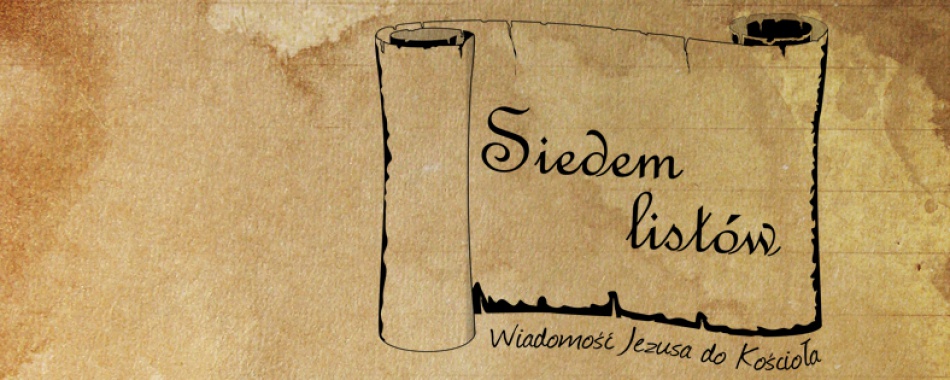 Siedem
listów
Wiadomość Jezusa do Kościoła